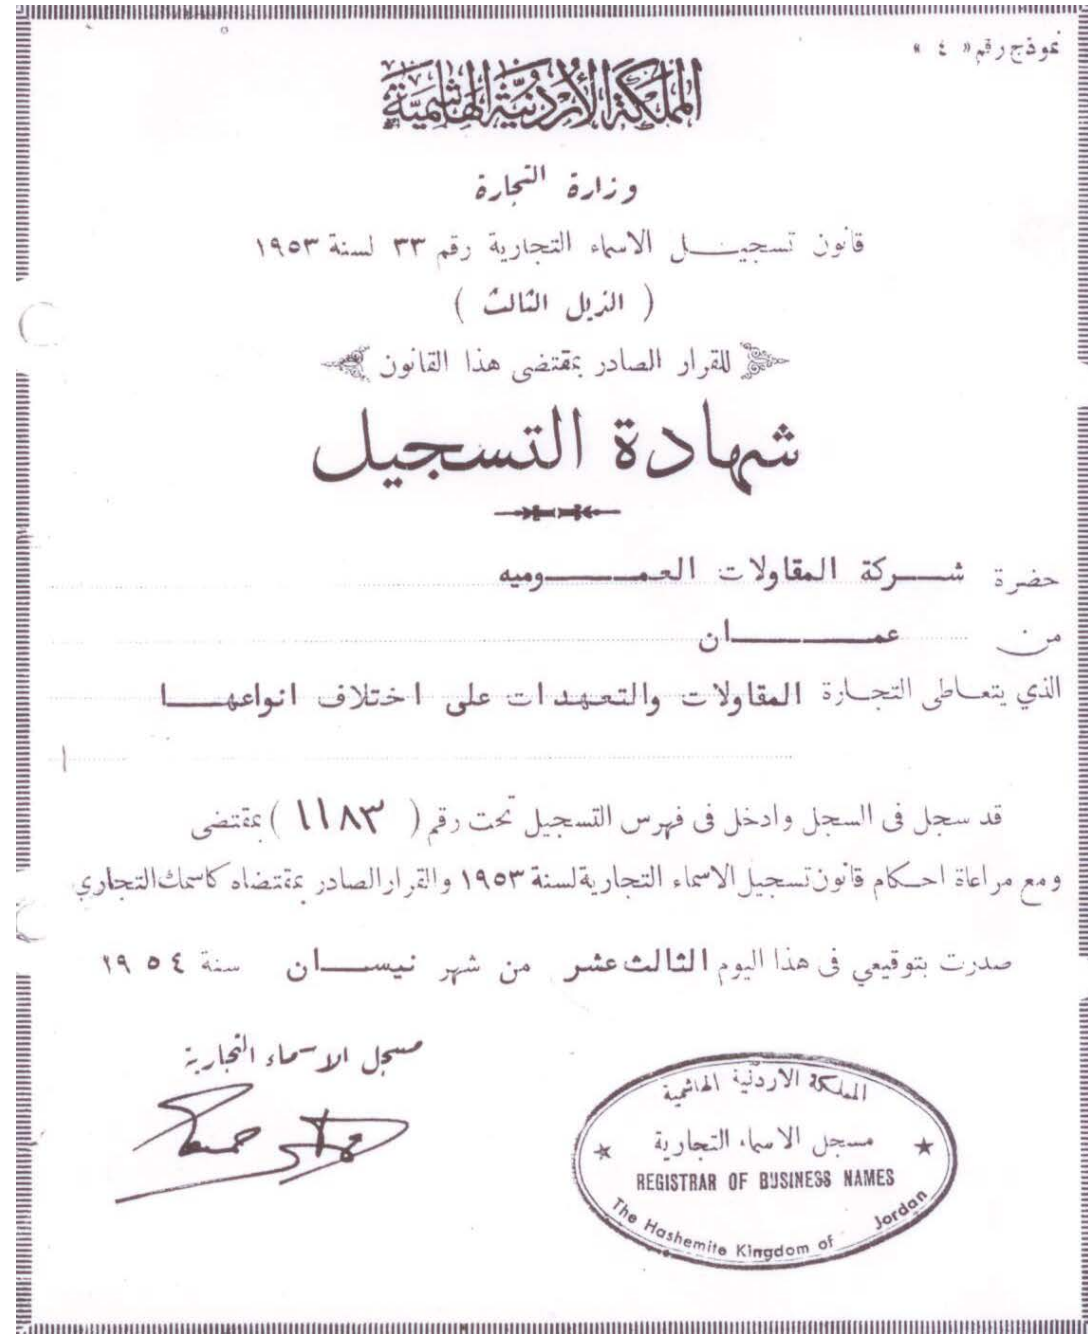 نموذج رقم « ٤ »
المملكة الأردنية الهاشمية
وزارة التجارة
قانون تسجيـــل الاسماء التجارية رقم ٣٣ لسنة ١٩٥٣
( الذيل الثالث )
للقرار الصادر بمقتضى هذا القانون
شهادة التسجيل
حضرة شـــركة المقاولات العمـــــوميه
من عمـــــــان
الذي يتعـاطى التجـارة المقاولات والتعهدات على اختلاف انواعهـــا
قد سجل فى السجل وادخل فى فهرس التسجيل تحت رقم ( ١١٨٣ ) بمقتضى
ومع مراعاة احـكام قانون تسجيل الاسماء التجارية لسنة ١٩٥٣ والقرار الصادر بمقتضاه كاسمك التجاري
صدرت بتوقيعي فى هذا اليوم الثالث عشر من شهر نيســـان سنة ١٩٥٤
مسجل الاسماء التجارية
المملكة الاردنية الهاشمية
مسجل الاسماء التجارية
REGISTRAR OF BUSINESS NAMES
The Hashemite Kingdom of Jordan